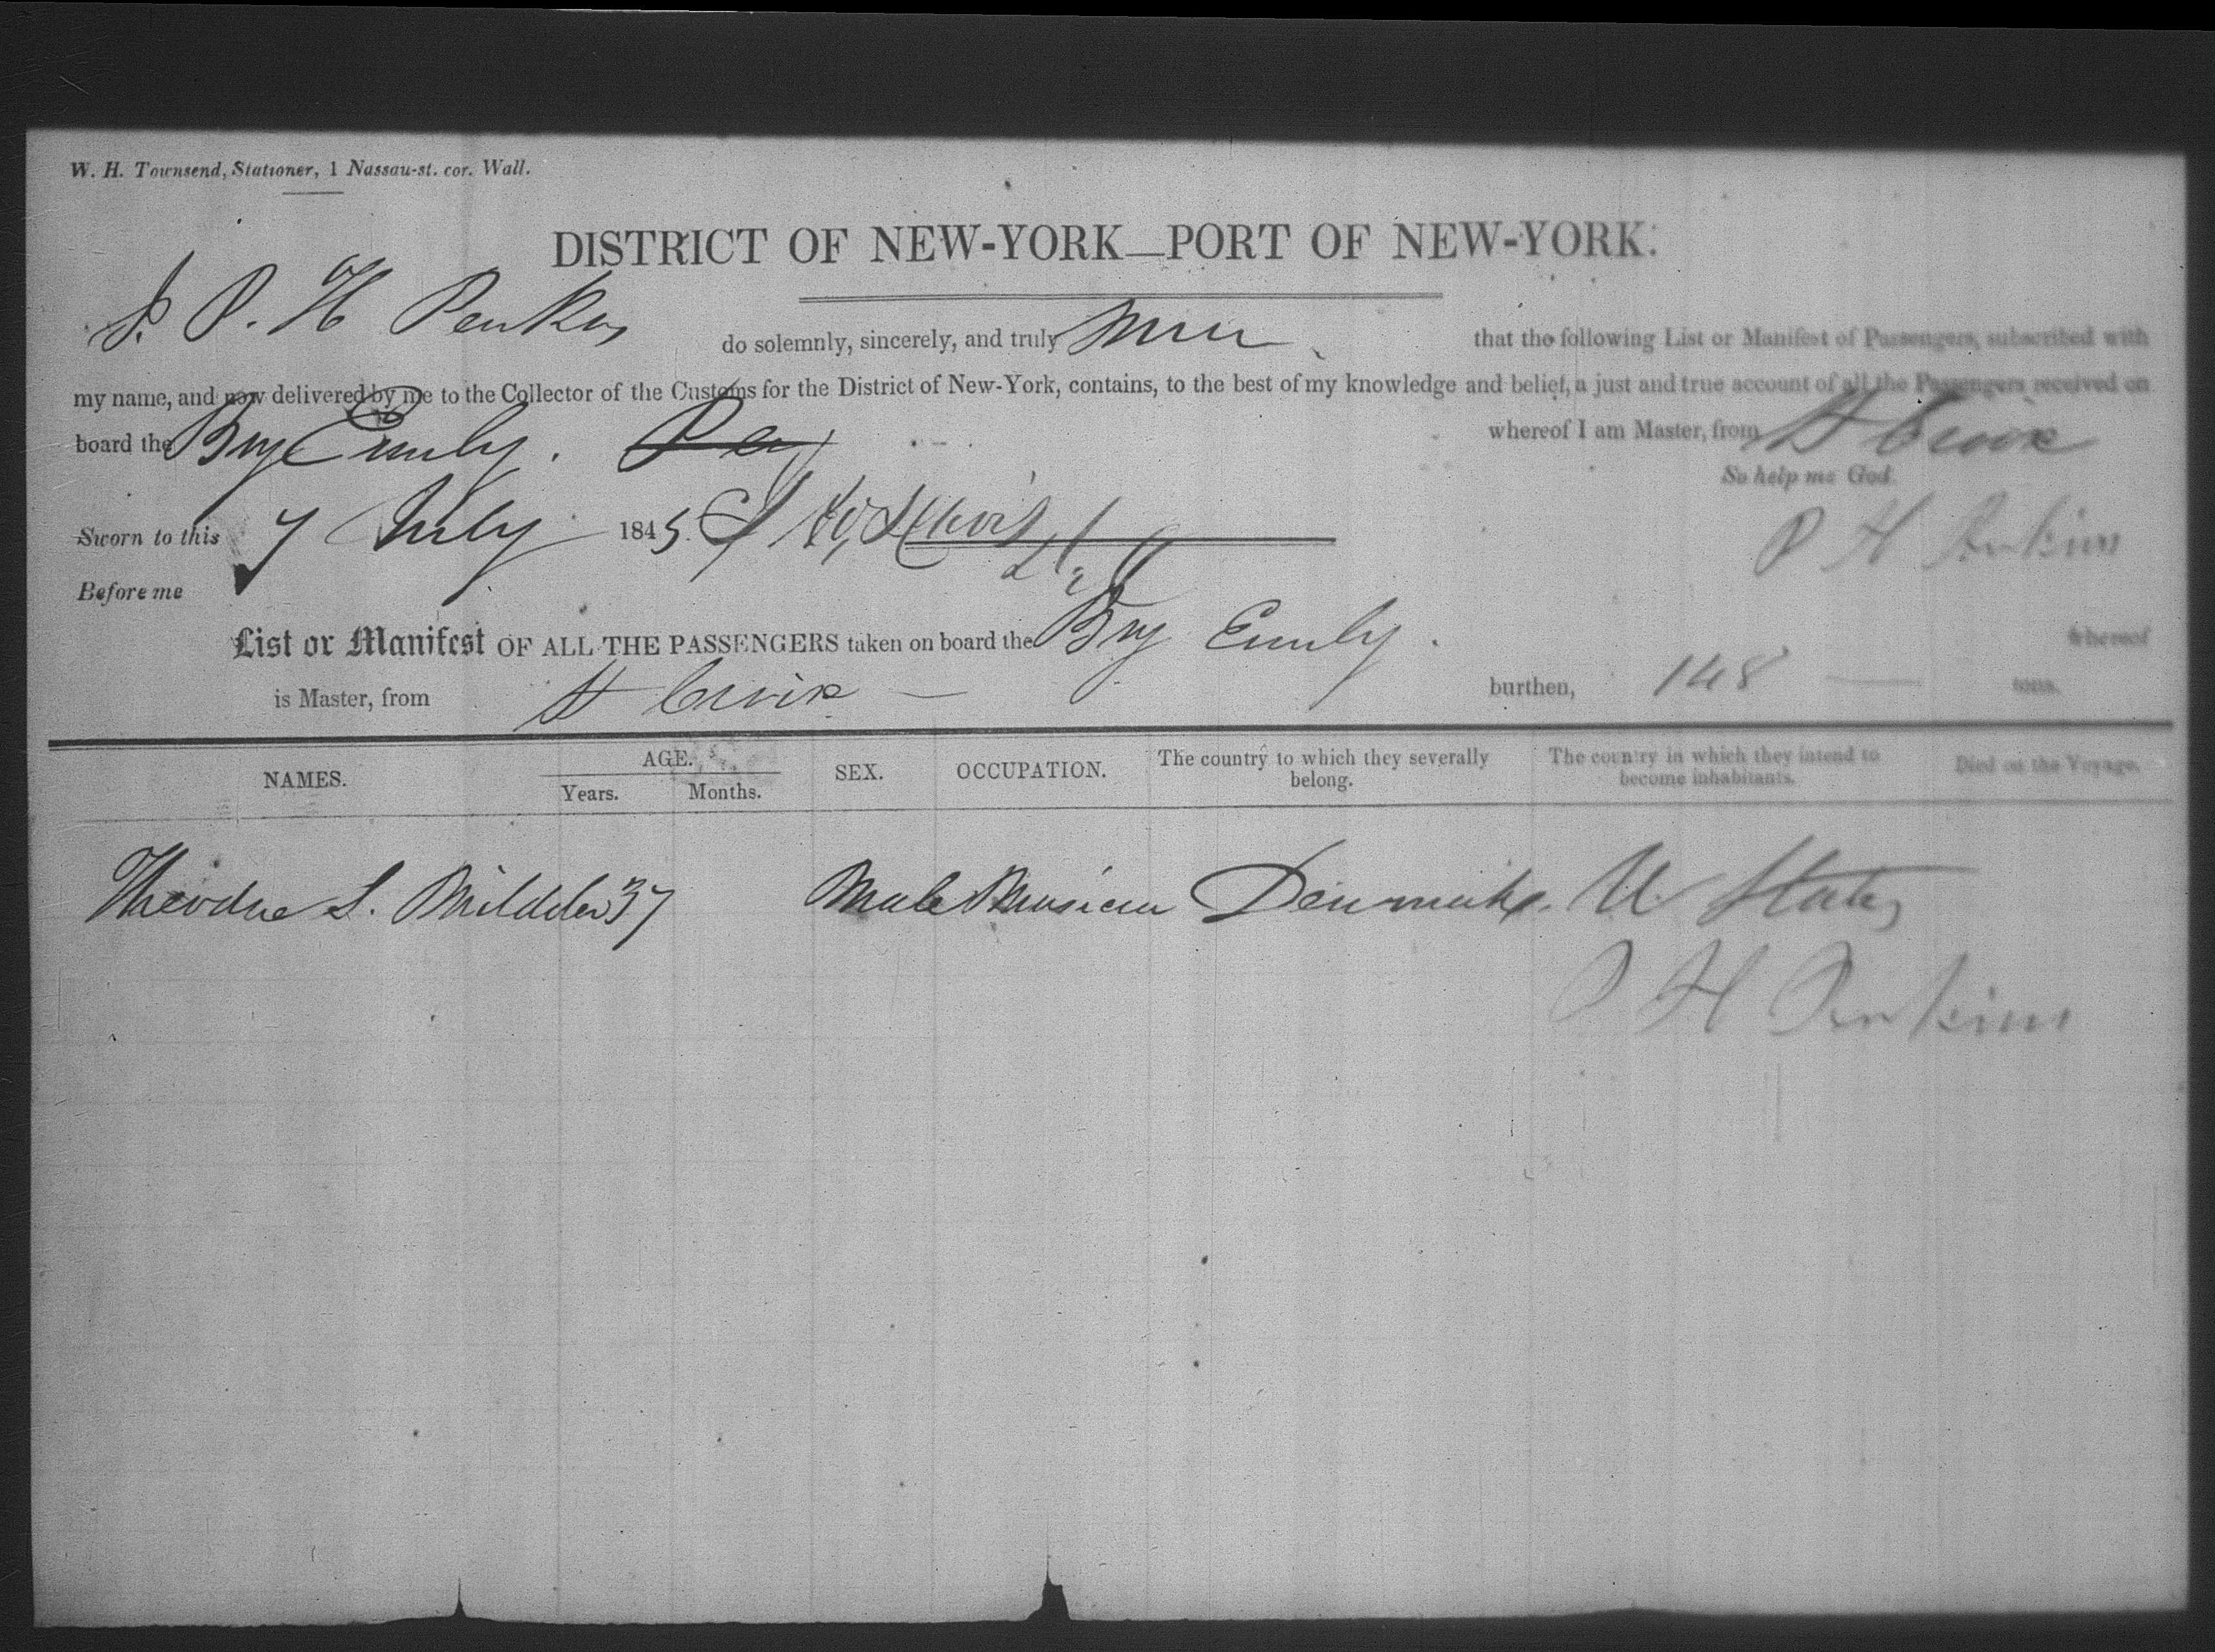 W. H. Townsend, Stationer, 1 Nassau-st. cor. Wall.
DISTRICT OF NEW-YORK—PORT OF NEW-YORK.
I. P. H Perkins do solemnly, sincerely, and truly swear that the following List or Manifest of Passengers, subscribed with
my name, and now delivered by me to the Collector of the Customs for the District of New-York, contains, to the best of my knowledge and belief, a just and true account of all the Passengers received on
board the Brig Emily. whereof I am Master, from St Croix
So help me God.
Sworn to this 7 July 1845. P H Perkins
Before me
List or Manifest OF ALL THE PASSENGERS taken on board the Brig Emily. whereof
is Master, from St Croix — burthen, 148 — tons.
NAMES. AGE. SEX. OCCUPATION. The country to which they severally belong. The country in which they intend to become inhabitants. Died on the Voyage.
Years. Months.
Theodore S. 37 Male Musician Denmark. U States
P H Perkins